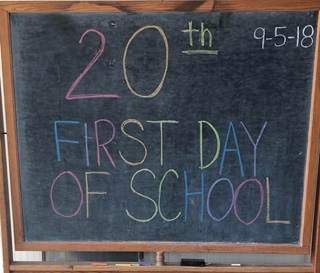 20th 9-5-18
FIRST DAY
OF SCHOOL